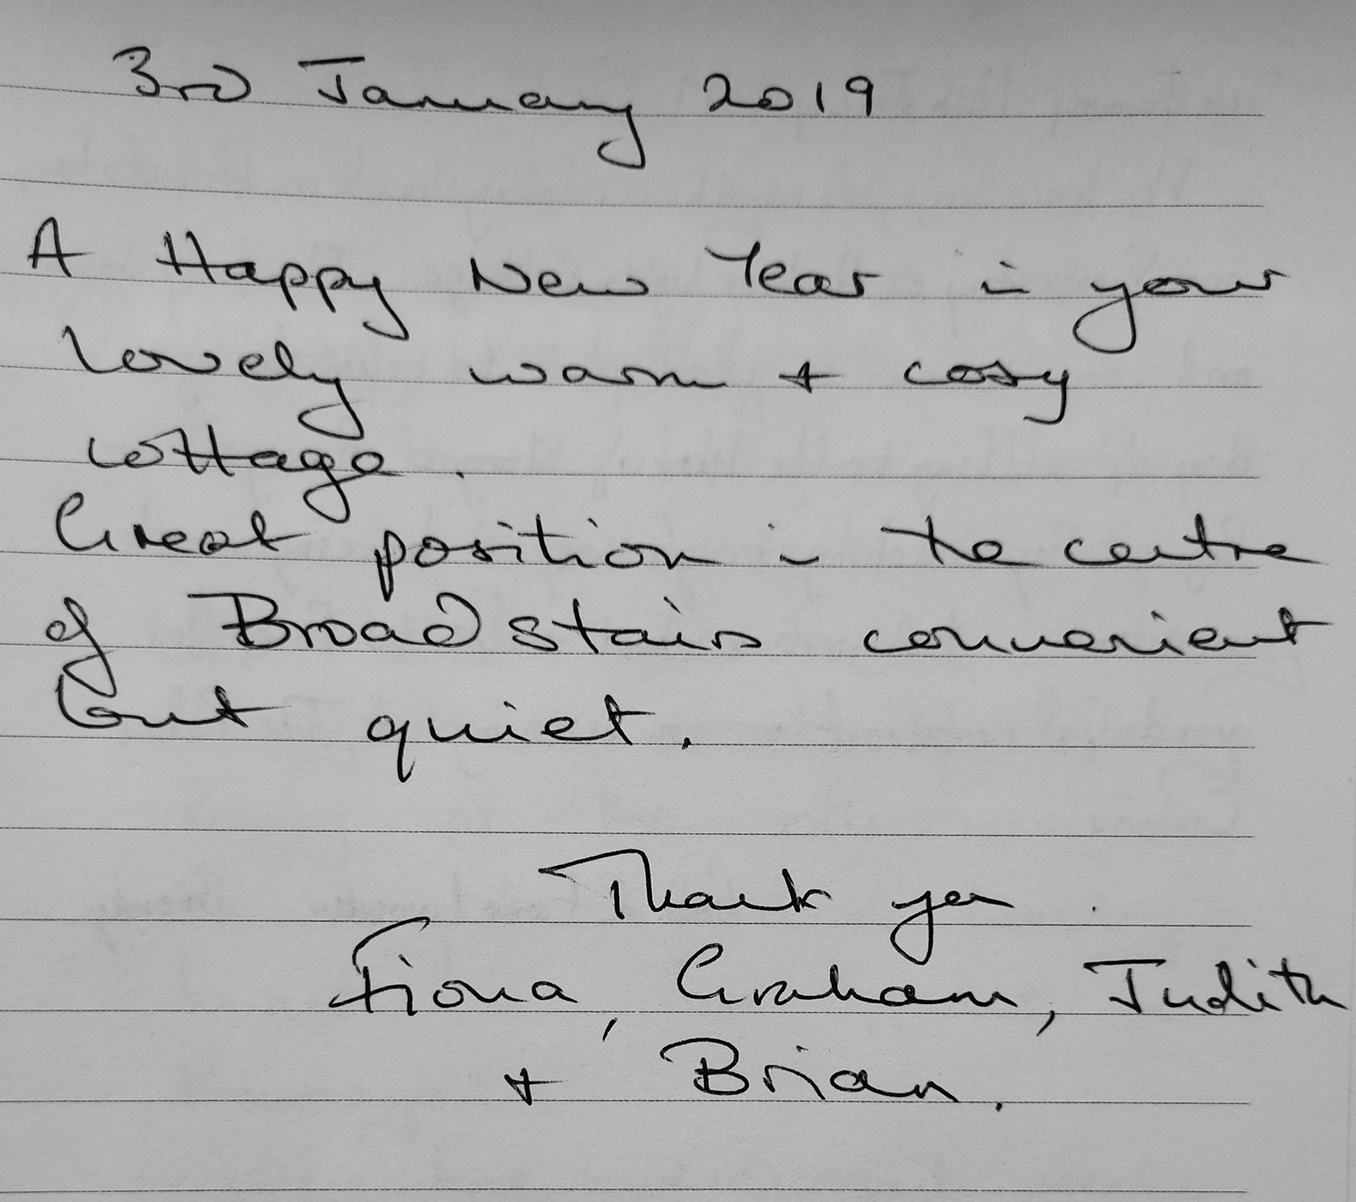 3rd January 2019
A Happy New Year in your
lovely warm + cosy
cottage.
Great position in the centre
of Broadstairs convenient
but quiet.
Thank you.
Fiona, Graham, Judith
+ Brian.